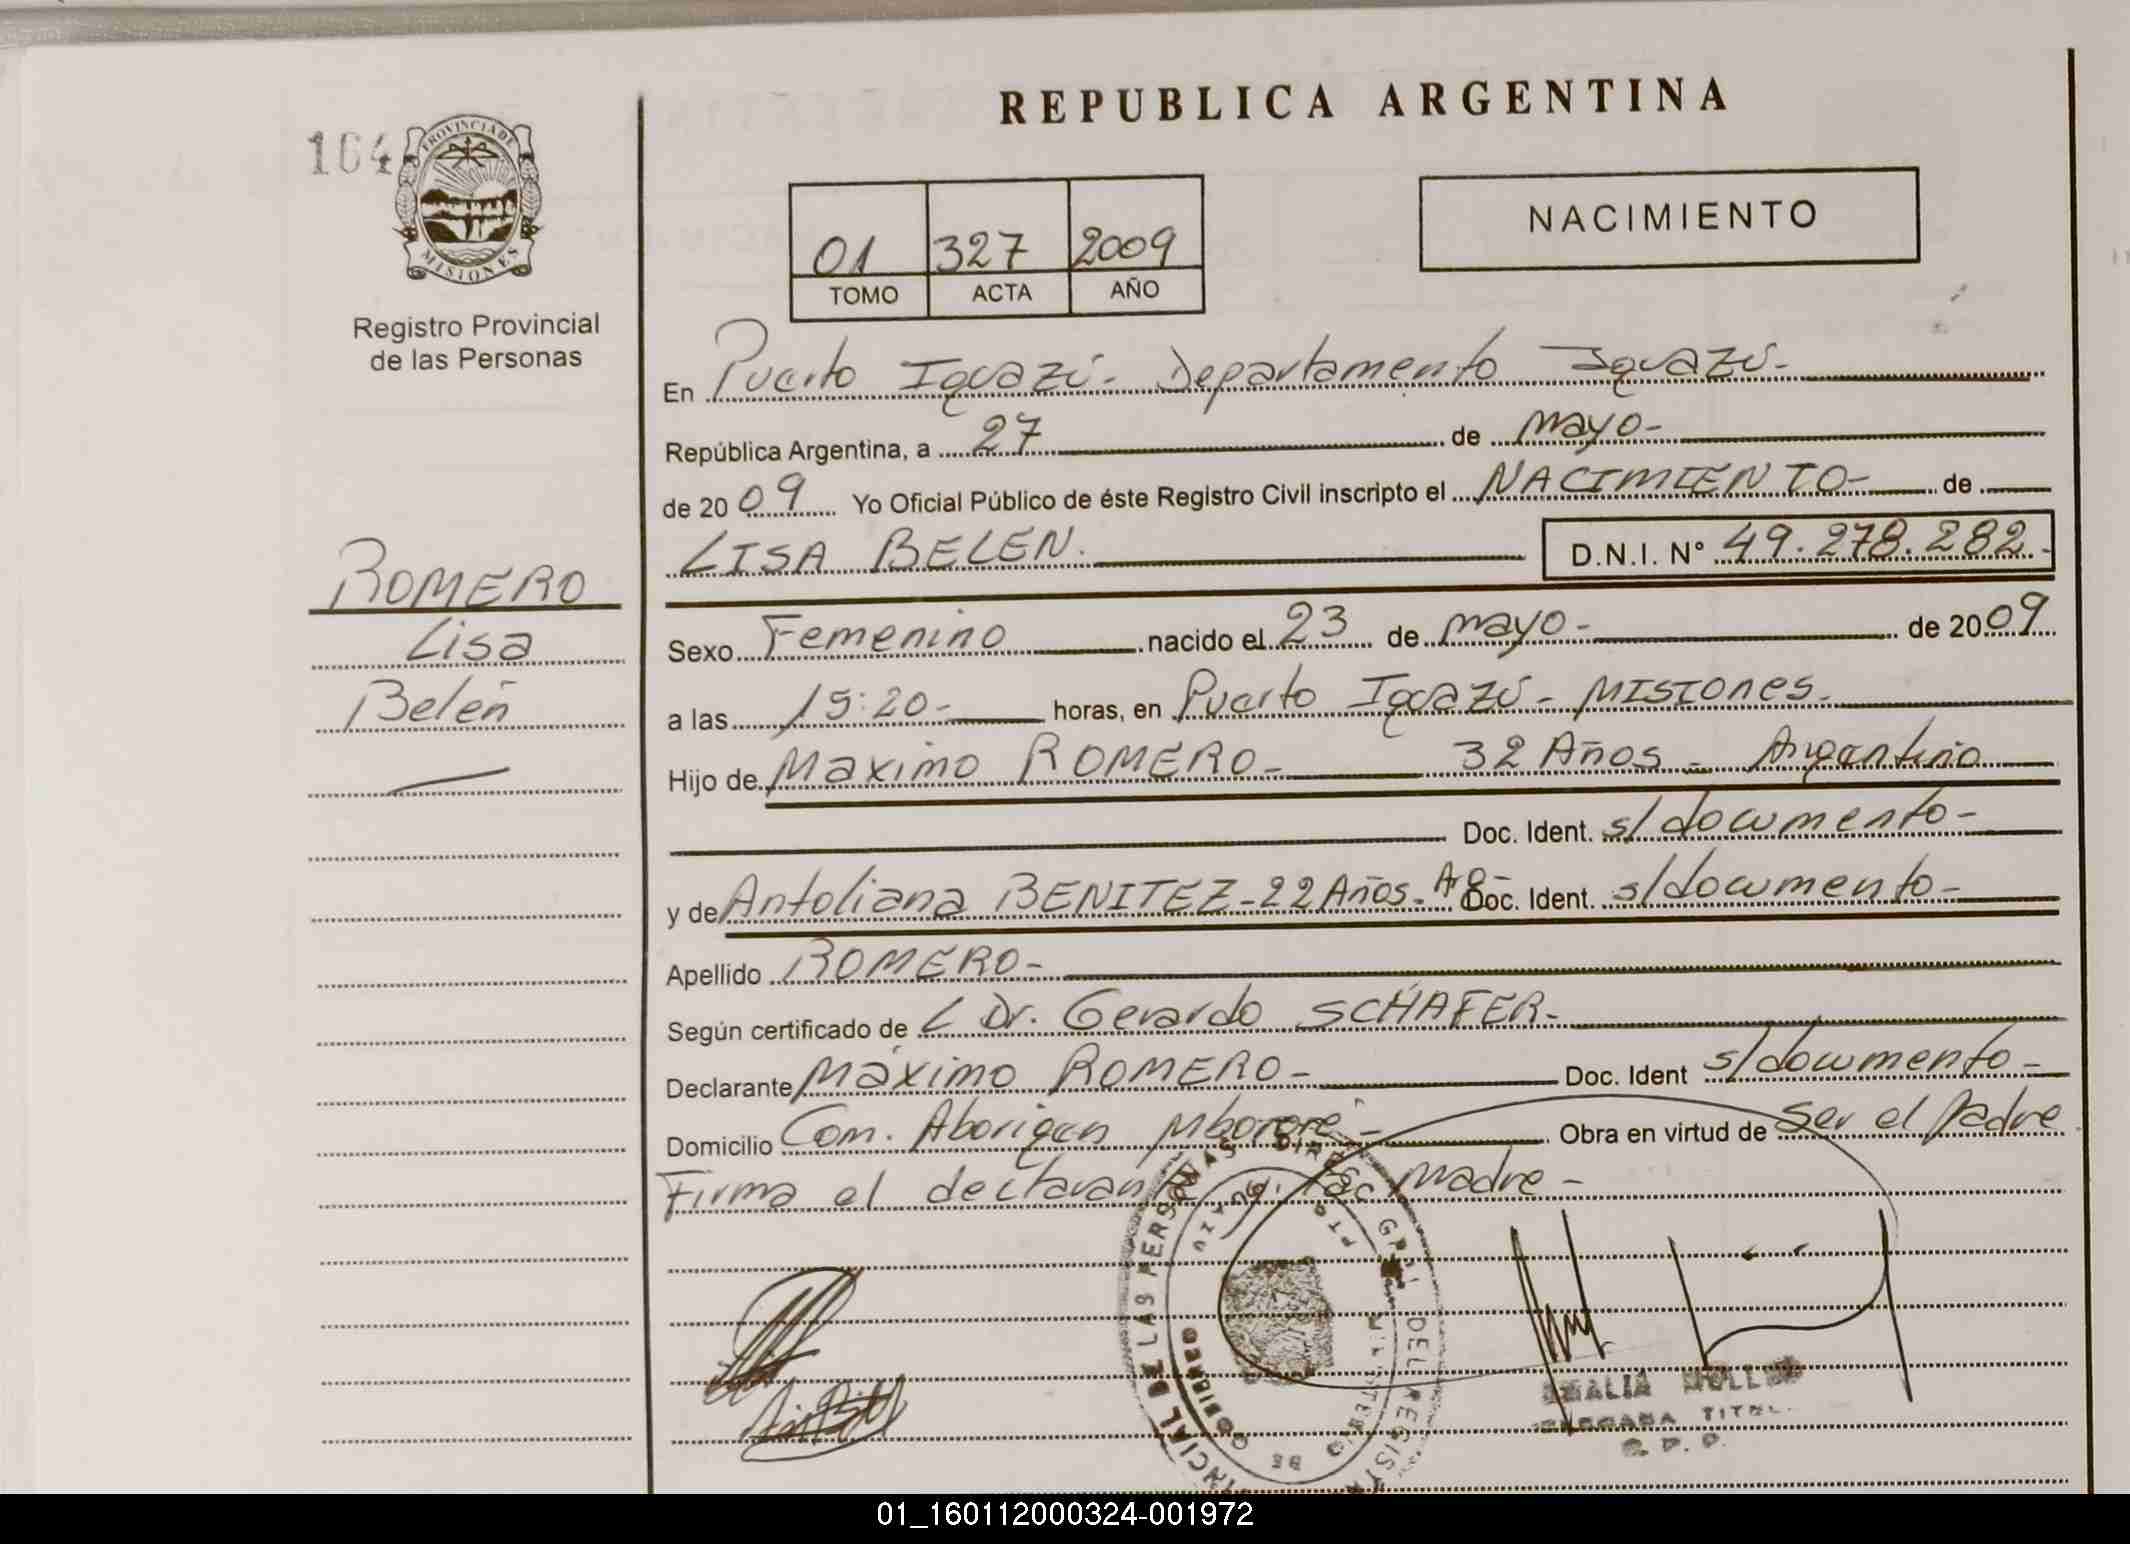 REPUBLICA ARGENTINA
164
PROVINCIA DE
MISIONES
Registro Provincial
de las Personas
01 327 2009
TOMO ACTA AÑO
NACIMIENTO
En Puerto Iguazú - Departamento Iguazú -
República Argentina, a 27 de mayo -
de 2009 Yo Oficial Público de éste Registro Civil inscripto el NACIMIENTO - de
LISA BELEN. D.N.I. Nº 49.278.282.-
ROMERO
Lisa
Belén
Sexo Femenino nacido el 23 de mayo - de 2009
a las 15:20 - horas, en Puerto Iguazú - Misiones.
Hijo de Maximo ROMERO - 32 Años - Argentino
Doc. Ident. s/documento -
y de Antoliana BENITEZ - 22 Años - Doc. Ident. s/documento -
Apellido ROMERO -
Según certificado de Dr. Gerardo SCHAFER -
Declarante Máximo ROMERO - Doc. Ident s/documento -
Domicilio Com. Aborigen Mbororé - Obra en virtud de ser el padre
Firma el declarante madre -
PROVINCIAL DE LAS PERSONAS
GRAL DEL REGISTRO
MINISTERIO DE GOBIERNO
PTO. IGUAZU
TITUL.
R. P. P.
01_160112000324-001972